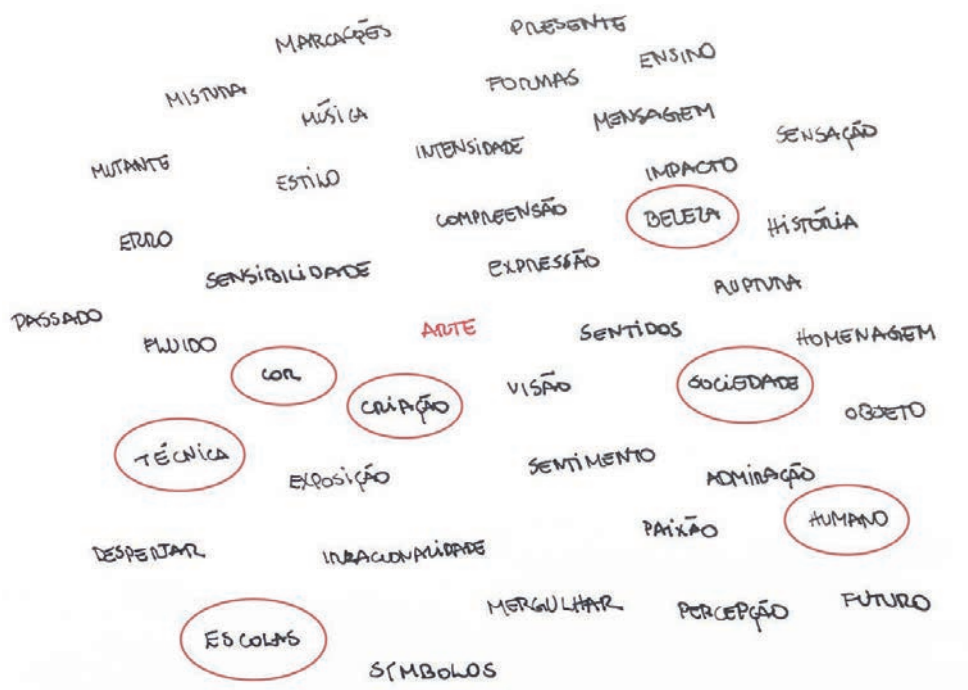 MARCAÇÕES
PRESENTE
ENSINO
MISTURA
FORMAS
MÚSICA
MENSAGEM
SENSAÇÃO
MUTANTE
ESTILO
INTENSIDADE
IMPACTO
ERRO
COMPREENSÃO
BELEZA
HISTÓRIA
SENSIBILIDADE
EXPRESSÃO
RUPTURA
PASSADO
FLUIDO
ARTE
SENTIDOS
HOMENAGEM
COR
CRIAÇÃO
VISÃO
SOCIEDADE
OBJETO
TÉCNICA
EXPOSIÇÃO
SENTIMENTO
ADMIRAÇÃO
HUMANO
PAIXÃO
DESPERTAR
IRRACIONALIDADE
MERGULHAR
PERCEPÇÃO
FUTURO
ESCOLAS
SÍMBOLOS